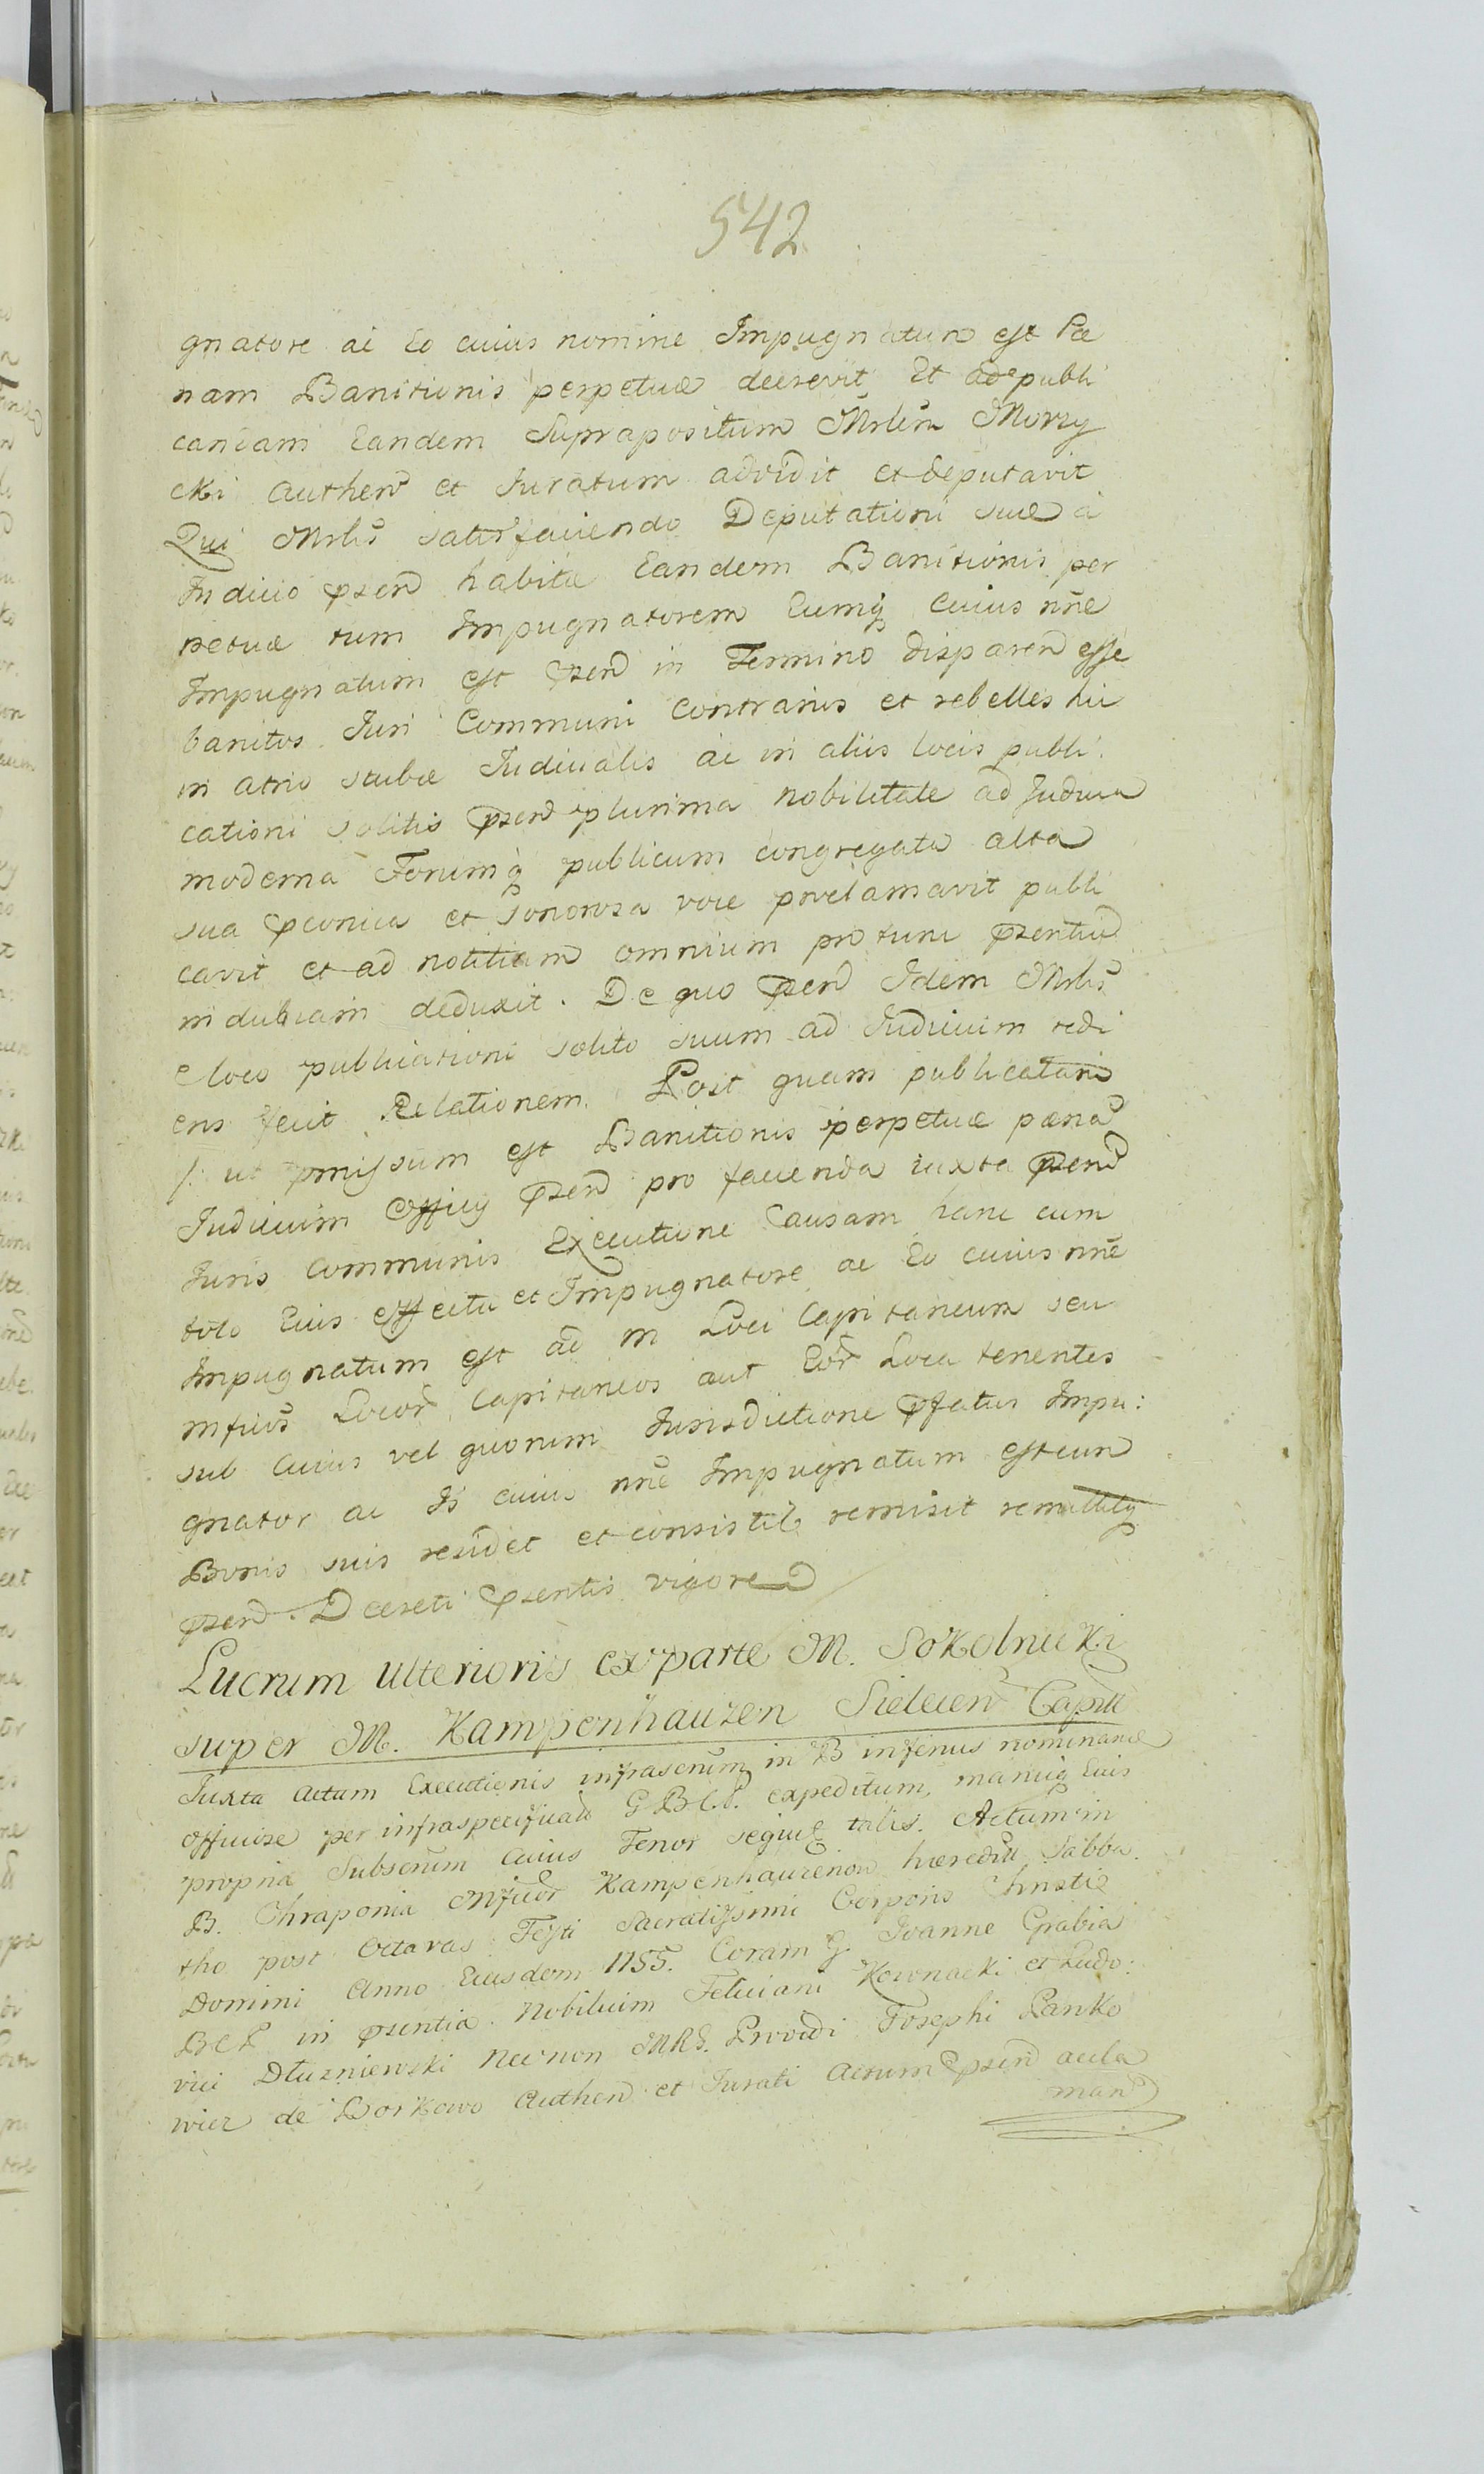 542
gnatore ac Eo cuius nomine Impugnatum est Pæ
nam Banitionis perpetuæ decrevit Et ad publi
candam Eandem Suprapositum Mrlem Morzy
cki Authen et Juratum addidit et deputavit
Qui Mrlis satisfaciendo Deputationi suæ à
Judicio pzen habitæ Eandem Banitionis per
petuæ tum Impugnatorem Eumq cuius nne
Impugnatum est pzen in Termino disparen esse
banitos Juri Communi contrarios et rebelles hic
in atrio stubæ Judicialis ac in aliis locis publi
cationi solitis pzen plurima nobilitate ad Judicia
moderna Forumq publicum congregata alta
sua pconica et sonorosa voce proclamavit publi
cavit et ad notitiam omnium pro tunc pzentiu
indubiam deduxit. De quo pzen Idem Mrlis
e loco publicationi solito suum ad Judicium redi
ens fecit Relationem. Post quam publicatam
/: ut pmissum est Banitionis perpetuæ pænã
Judicium Officy pzen pro facienda iuxta pzen
Juris Communis Executione Causam hanc cum
toto Eius effectu et Impugnatore ac Eo cuius nne
Impugnatum est ad M Loci Capitaneum seu
Mficos Locor Capitaneos aut Eor Loca tenentes
sub cuius vel quorum Jurisdictione pfatus Impu:
gnator ac Is cuius nne Impugnatum est cum
Bonis suis residet et consistit remisit remittitq
pzen Decreti pzentis vigore
Lucrum ulterioris ex parte M. Sokolnicki
super M. Kampenhauzen Sielecen Capitt
Juxta Actum Executionis infrascrum in B inferius nominan
officiose per infraspecificat G BCP. expeditum, manuiq Eius
propria Subscrum cuius Tenor sequit talis. Actum in
B. Chraponia Mficor Kampenhauzenow hæredit Sabba.
tho post Octavas Festi Sacratissimi Corporis Christi
Domini Anno Eiusdem 1755. Coram G. Joanne Grabia
BCP in pzentia Nobilium Feliciani Kownacki et Ludo:
vici Dłuzniewski Necnon MRG. Providi Josephi Panko
wicz de Borkowo Authen et Jurati Actum pzen accla
man